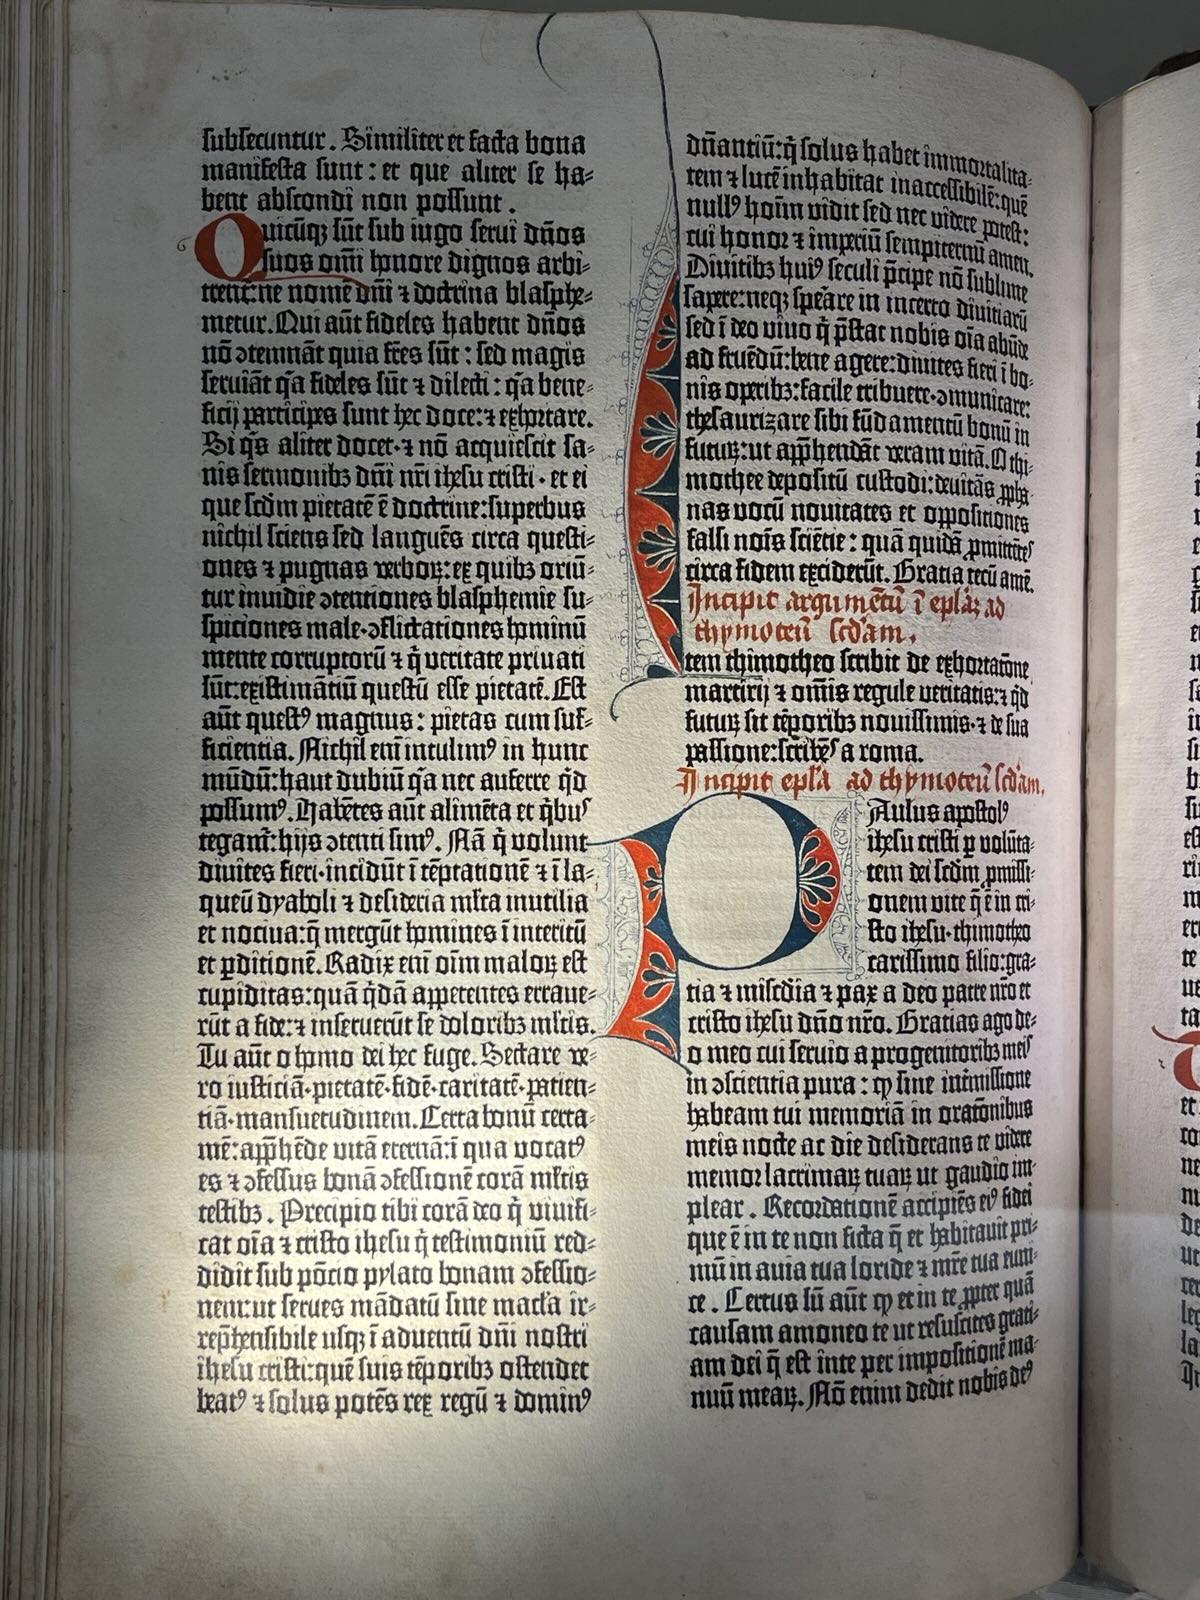 subsecuntur. Similiter et facta bona
manifesta sunt: et que aliter se ha-
bent abscondi non possunt.
6
Quicūqꝫ sūt sub iugo serui dn̄os
suos om̄i honore dignos arbi-
trent̄: ne nomē dn̄i ⁊ doctrina blasphe-
metur. Qui aūt fideles habent dn̄os
nō ↄtemnāt quia fr̄es sūt: sed magis
seruiāt q̄a fideles sūt ⁊ dilecti: q̄a bene-
ficij participes sunt hec doce: ⁊ exhortare.
Si q̄s aliter docet · ⁊ nō acquiescit sa-
nis sermonibꝫ dn̄i nr̄i ihesu cristi · et ei
que scdm̄ pietatē ē doctrine: superbus
nichil sciens sed languēs circa questi-
ones ⁊ pugnas verboꝝ: ex quibꝫ oriū-
tur inuidie ↄtentiones blasphemie su-
spiciones male · ↄflictationes hominū
mente corruptorū ⁊ q̄ ueritate priuati
sūt: existimātiū questū esse pietatē. Est
aūt questꝰ magnus: pietas cum suf-
ficientia. Nichil em̄ intulimꝰ in hunc
mūdū: haut dubiū q̄a nec auferre q̄d
possumꝰ. Habētes aūt alimēta et q̄bus
tegam̄: hijs ↄtenti simꝰ. Nā q̄ volunt
diuites fieri · incidūt ī tēptationē ⁊ ī la-
queū dyaboli ⁊ desideria ml̄ta inutilia
et nociua: q̄ mergūt homines ī interitū
et ꝑditionē. Radix em̄ oīm maloꝝ est
cupiditas: quā q̄dā appetentes erraue-
rūt a fide: ⁊ inseruerūt se doloribꝫ ml̄tis.
Tu aūt o homo dei hec fuge. Sectare ve-
ro iusticiā · pietatē · fidē · caritatē · patien-
tiā · mansuetudinem. Certa bonū certa-
mē: app̄hēde vitā eternā: ī qua vocatꝰ
es ⁊ ↄfessus bonā ↄfessionē corā ml̄tis
testibꝫ. Precipio tibi corā deo q̄ viuifi-
cat oīa ⁊ cristo ihesu q̄ testimoniū red-
didit sub pōcio pylato bonam ↄfessio-
nem: ut serues mādatū sine macl̄a ir-
rep̄hensibile usqꝫ ī aduentū dn̄i nostri
ihesu cristi: quē suis tēporibꝫ ostendet
beatꝰ ⁊ solus potēs rex regū ⁊ dominꝰ
dn̄antiū: q̄ solus habet immortalita-
tem ⁊ lucē inhabitat inaccessibilē: quē
nullꝰ hoīm vidit sed nec videre potest:
cui honor ⁊ imperiū sempiternū amen.
Diuitibꝫ huiꝰ seculi p̄cipe nō sublime
sapere: neqꝫ sp̄eare in incerto diuitiarū
sed ī deo viuo q̄ p̄stat nobis oīa abūde
ad fruēdū: bene agere: diuites fieri ī bo-
nis operibꝫ: facile tribuere · ↄmunicare:
thesaurizare sibi fūdamentū bonū in
futuꝝ: ut app̄hendāt veram vitā. O thi-
mothee depositū custodi: deuitās ꝓpha-
nas vocū nouitates et oppositiones
falsi noīs sciētie: quā quidā ꝓmittētes
circa fidem exciderūt. Gratia tecū amē.
Incipit argumētū ī epl̄aꝫ ad
thymoteū scd̄am.
Item thimotheo scribit de exhortatōne
martirij ⁊ om̄is regule veritatis: ⁊ q̄d
futuꝝ sit tēporibꝫ nouissimis · ⁊ de sua
passione: scribēs a roma.
Incipit epl̄a ad thymoteū scd̄am.
PAulus apostolꝰ
ihesu cristi ꝑ volūta-
tem dei scdm̄ ꝓmissi-
onem vite q̄ ē in cri-
sto ihesu · thimotheo
carissimo filio: gra-
tia ⁊ misc̄dia ⁊ pax a deo patre nr̄o et
cristo ihesu dn̄o nr̄o. Gratias ago de-
o meo cui seruio a progenitoribꝫ meis
in ↄscientia pura: ꝙ sine int̄missione
habeam tui memoriā in oratōnibus
meis nocte ac die desiderans te videre
memor lacrimaꝝ tuaꝝ ut gaudio im-
plear. Recordationē accipiēs eiꝰ fidei
que ē in te non ficta q̄ et habitauit pri-
mū in auia tua loride ⁊ mr̄e tua euni-
ce. Certus sū aūt ꝙ et in te. ꝓpter quā
causam amoneo te ut resuscites grati-
am dei q̄ est in te per impositionē ma-
nuū meaꝝ. Nō enim dedit nobis deꝰ